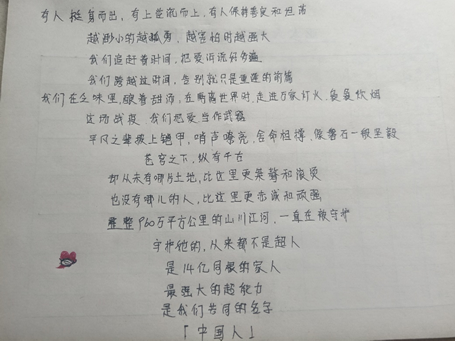 有人挺身而出,有人坐而上,有人保持善良和坦荡
越渺小的越威勇,越害怕时越强大
我们追赶着时间,把爱
我们跨越过时间,告别就只是重逢的前篇
我们在乏味里,酿着甜酒,在野蛮世界时,走进万家灯火,袅袅炊烟
这场战役,我们把爱当作武器
平凡之辈披上铠甲,哨声嘹亮,舍命相撑,像磐石一般坚毅
苍穹之下,纵有千古
却从未有哪片土地,比这里更英勇和滚烫
也没有哪儿的人,比这里更赤诚和顽强
整整960万平方公里的山川江河,一直在被守护
守护他的,从来都不是超人
是14亿同胞的家人
最强大的超能力
是我们共同的名字
「中国人」